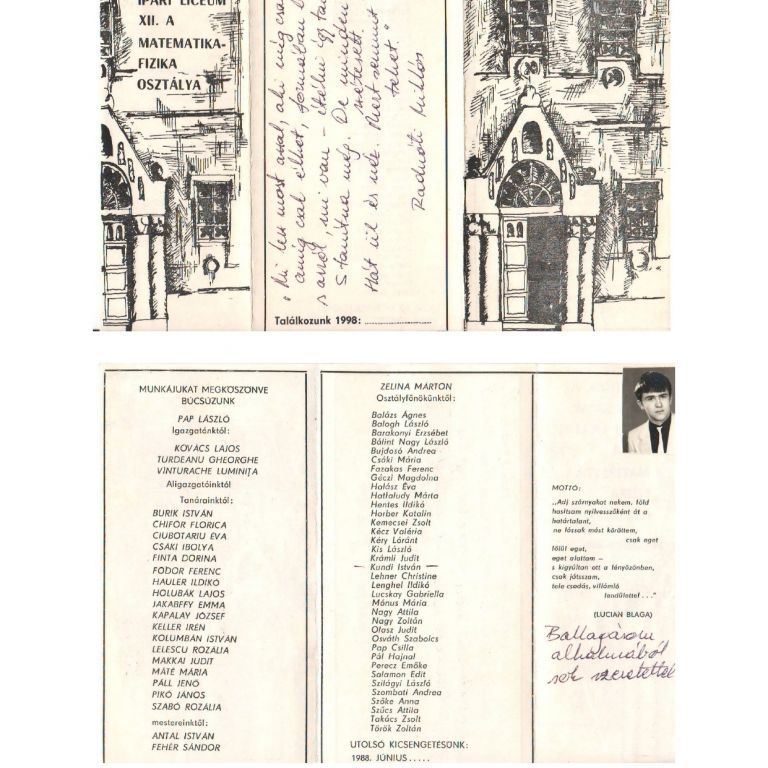 IPARI LICEUM
XII. A
MATEMATIKA-
FIZIKA
OSZTÁLYA
„Mi lesz most azzal, aki míg csak
amíg csak élhet, formában
s arról, mi van – ítélni így
S tanítna még. De minden
szétesett
Hát ül és néz. Mert semmit
tehet."
Radnóti Miklós
Találkozunk 1998:
MUNKÁJUKAT MEGKÖSZÖNVE
BÚCSÚZUNK
PAP LÁSZLÓ
Igazgatónktól:
KOVÁCS LAJOS
TURDEANU GHEORGHE
VINTURACHE LUMINIȚA
Aligazgatóinktól
Tanárainktól:
BURIK ISTVÁN
CHIFOR FLORICA
CIUBOTARIU ÉVA
CSÁKI IBOLYA
FINTA DORINA
FODOR FERENC
HAULER ILDIKÓ
HOLUBÁK LAJOS
JAKABFFY EMMA
KAPALAY JÓZSEF
KELLER IRÉN
KOLUMBÁN ISTVÁN
LELESCU ROZÁLIA
MAKKAI JUDIT
MÁTÉ MÁRIA
PÁLL JENŐ
PIKÓ JÁNOS
SZABÓ ROZÁLIA
mestereinktől:
ANTAL ISTVÁN
FEHÉR SÁNDOR
ZELINA MÁRTON
Osztályfőnökünktől:
Balázs Ágnes
Balogh László
Barakonyi Erzsébet
Bálint Nagy László
Bujdosó Andrea
Csáki Mária
Fazakas Ferenc
Géczi Magdolna
Halász Éva
Hatfaludy Márta
Hentes Ildikó
Horber Katalin
Kemecsei Zsolt
Kécz Valéria
Kéry Lóránt
Kis László
Krámli Judit
Kundi István
Lehner Christine
Lenghel Ildikó
Lucskay Gabriella
Mónus Mária
Nagy Attila
Nagy Zoltán
Olasz Judit
Osváth Szabolcs
Pap Csilla
Pál Hajnal
Perecz Emőke
Salamon Edit
Szilágyi László
Szombati Andrea
Szőke Anna
Szűcs Attila
Takács Zsolt
Török Zoltán
UTOLSÓ KICSENGETÉSÜNK:
1988. JÚNIUS.....
MOTTÓ:
„Adj szárnyakat nekem, föld
hasítsam nyílvesszőként át a
határtalant,
ne lássak mást köröttem,
csak eget
fölül eget,
eget alattam —
s kigyúltan ott a fényözönben,
csak játsszam,
tele csodás, villámló
lendülettel . . ."
(LUCIAN BLAGA)
Ballagásom
alkalmából
sok szeretettel